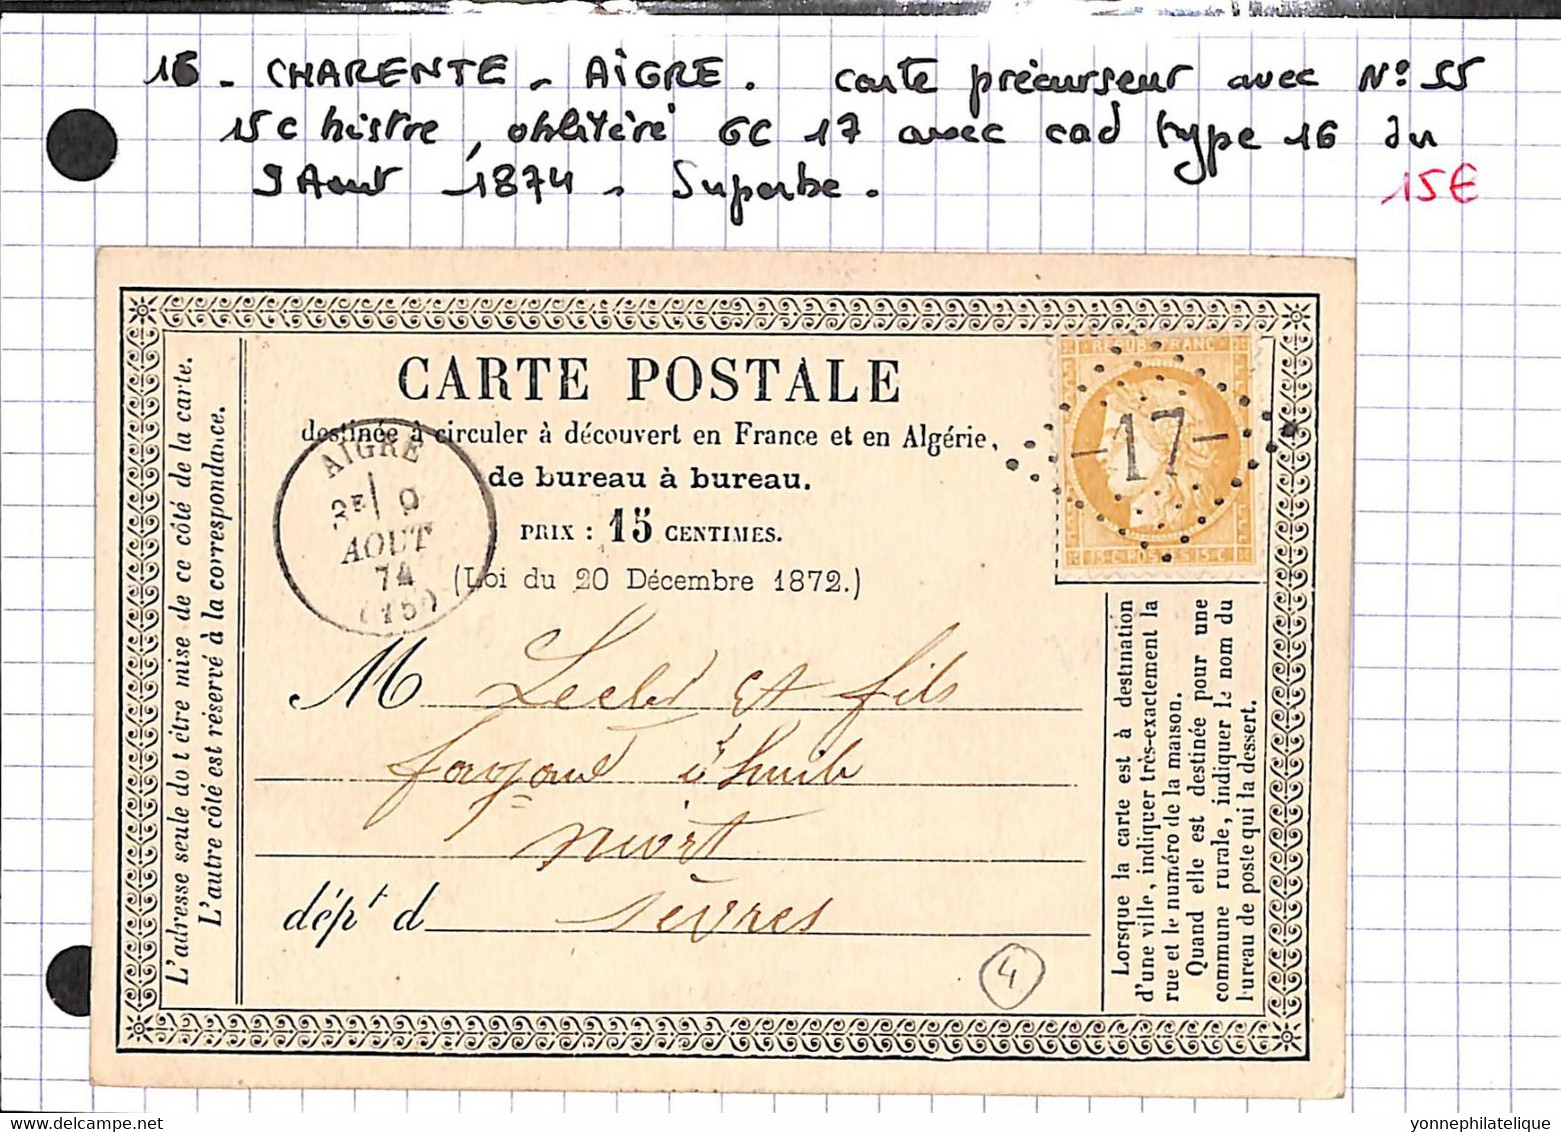 16 - CHARENTE - AIGRE. carte précurseur avec N° 55
15 c bistre, oblitéré GC 17 avec cad type 16 du
9 Aout 1874 - Superbe.
15€
CARTE POSTALE
destinée à circuler à découvert en France et en Algérie,
de bureau à bureau.
PRIX : 15 CENTIMES.
(Loi du 20 Décembre 1872.)
AIGRE
3E 9
AOUT
74
(15)
REPUB FRANC
-17-
15 C POSTES 15 C
L'adresse seule doit être mise de ce côté de la carte.
L'autre côté est réservé à la correspondance.
M et fils
à huile
niort
dépt d sèvres
Lorsque la carte est à destination
d'une ville, indiquer très-exactement la
rue et le numéro de la maison.
Quand elle est destinée pour une
commune rurale, indiquer le nom du
bureau de poste qui la dessert.
4
yonnephilatelique